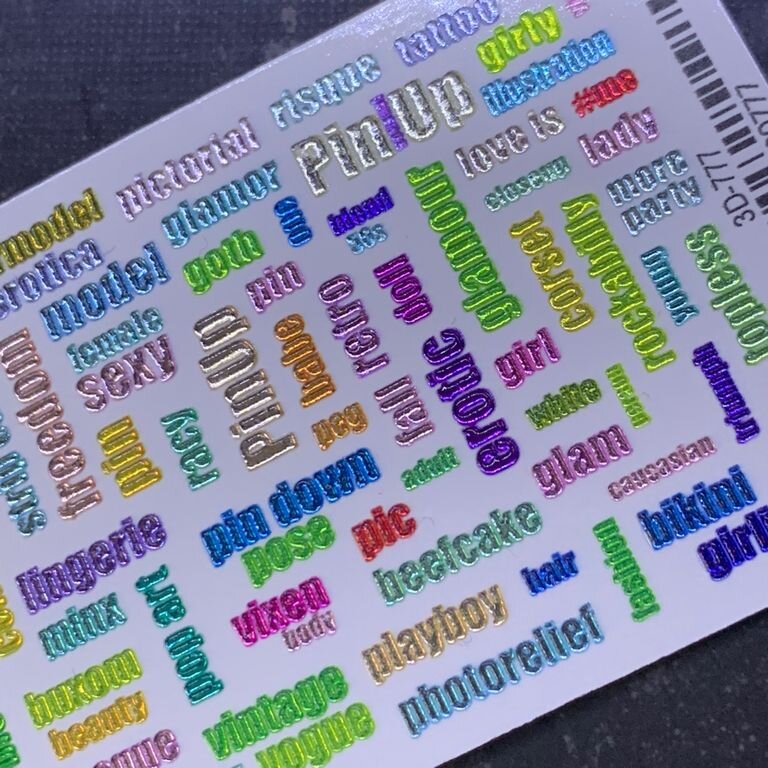 tattoo
girly
risque
illustration
#me
PinUp
pictorial
love is
lady
glamor
closeup
more
party
model
erotica
model
goth
blond
80s
glamour
corset
rockabilly
young
topless
female
sexy
pin
pinup
retro
doll
erotic
girl
freedom
racy
vague
peg
tall
white
woman
triumph
pin down
adult
glam
caucasian
pose
pic
beefcake
bikini
girly
lingerie
minx
pop art
vixen
body
hair
playboy
photorelief
buxom
beauty
vintage
vogue
3D-777